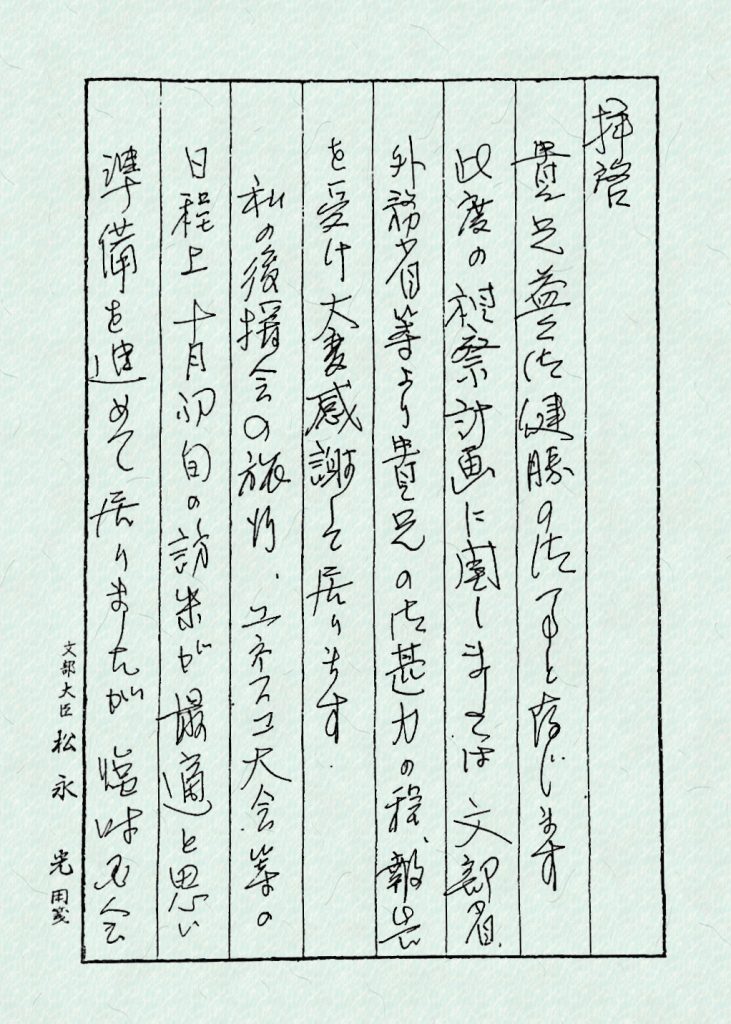 拝啓
貴兄益々御健勝の御事と存じます
此度の視察計画に関しましては文部省、
外務省等より貴兄の御甚力の程、報告
を受け大変感謝して居ります.
私の後援会の旅行、ユネスコ大会等の
日程上十月初旬の訪米が最適と思い
準備を進めて居りましたが臨時国会
文部大臣 松永 光 用箋